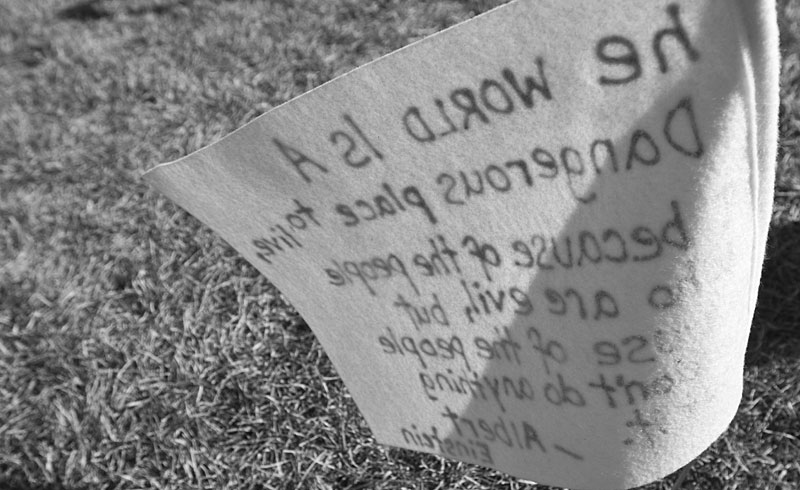 he WORLD IS A
Dangerous place to live,
because of the people
o are evil, but
se of the people
n't do anything
it.
— Albert
Einstein